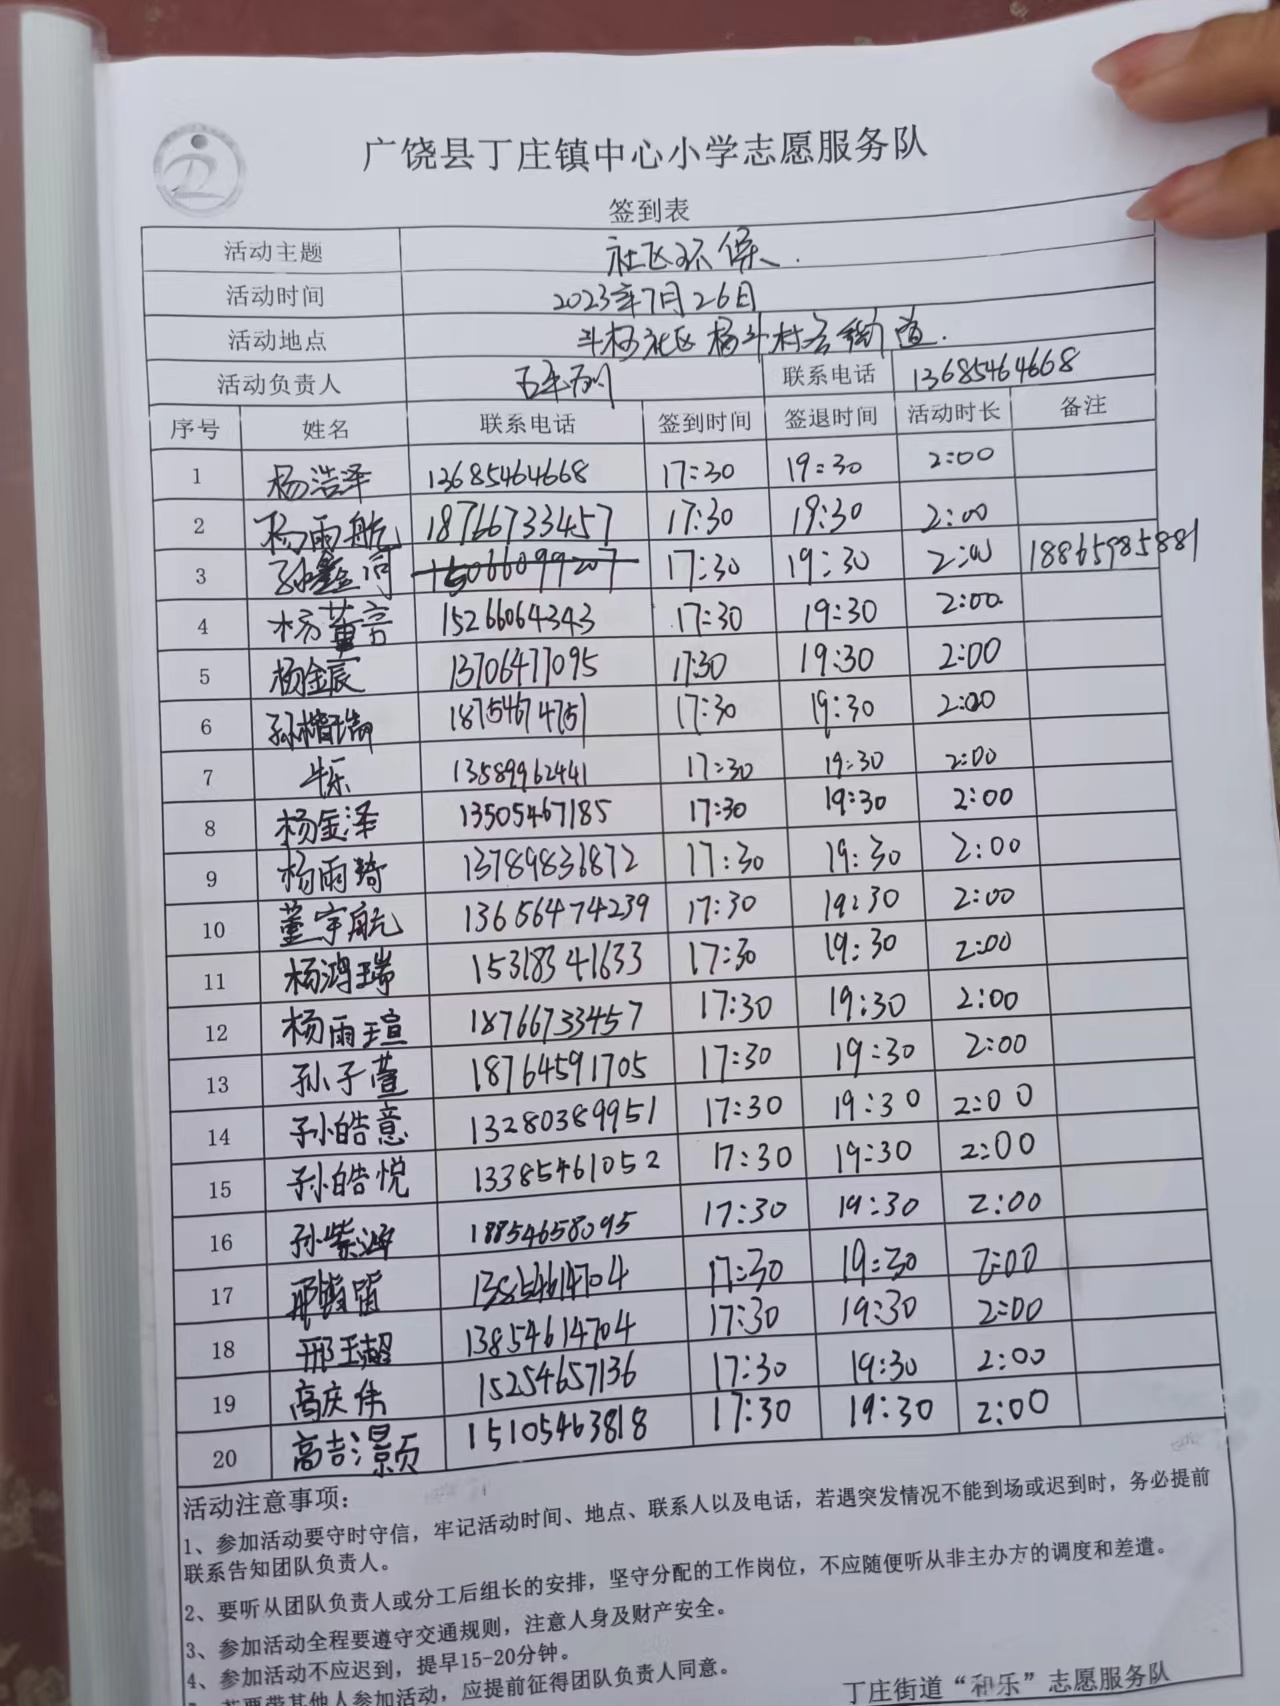 广饶县丁庄镇中心小学志愿服务队
签到表
活动主题 社区环保.
活动时间 2023年7月26日
活动地点 斗杨社区杨斗村各街道.
活动负责人 联系电话 13685464668
序号 姓名 联系电话 签到时间 签退时间 活动时长 备注
1 杨浩泽 13685464668 17:30 19:30 2:00
2 杨雨航 18766733457 17:30 19:30 2:00
3 15066099207 17:30 19:30 2:00 18865985881
4 杨董亮 15266064343 17:30 19:30 2:00
5 杨金辰 13706477095 17:30 19:30 2:00
6 孙楷瑞 18754674751 17:30 19:30 2:00
7 牛乐 13589962441 17:30 19:30 2:00
8 杨金泽 13505467185 17:30 19:30 2:00
9 杨雨琦 13789831872 17:30 19:30 2:00
10 董宇航 13656474239 17:30 19:30 2:00
11 杨鸿瑞 15318341633 17:30 19:30 2:00
12 杨雨瑄 18766733457 17:30 19:30 2:00
13 孙子萱 18764591705 17:30 19:30 2:00
14 孙皓意 13280389951 17:30 19:30 2:00
15 孙皓悦 13385461052 17:30 19:30 2:00
16 18854658095 17:30 19:30 2:00
17 13854614704 17:30 19:30 2:00
18 邢玉超 13854614704 17:30 19:30 2:00
19 高庆伟 15254657136 17:30 19:30 2:00
20 高吉灏 15105463818 17:30 19:30 2:00
活动注意事项：
1、参加活动要守时守信，牢记活动时间、地点、联系人以及电话，若遇突发情况不能到场或迟到时，务必提前
联系告知团队负责人。
2、要听从团队负责人或分工后组长的安排，坚守分配的工作岗位，不应随便听从非主办方的调度和差遣。
3、参加活动全程要遵守交通规则，注意人身及财产安全。
4、参加活动不应迟到，提早15-20分钟。
若要带其他人参加活动，应提前征得团队负责人同意。
丁庄街道“和乐”志愿服务队